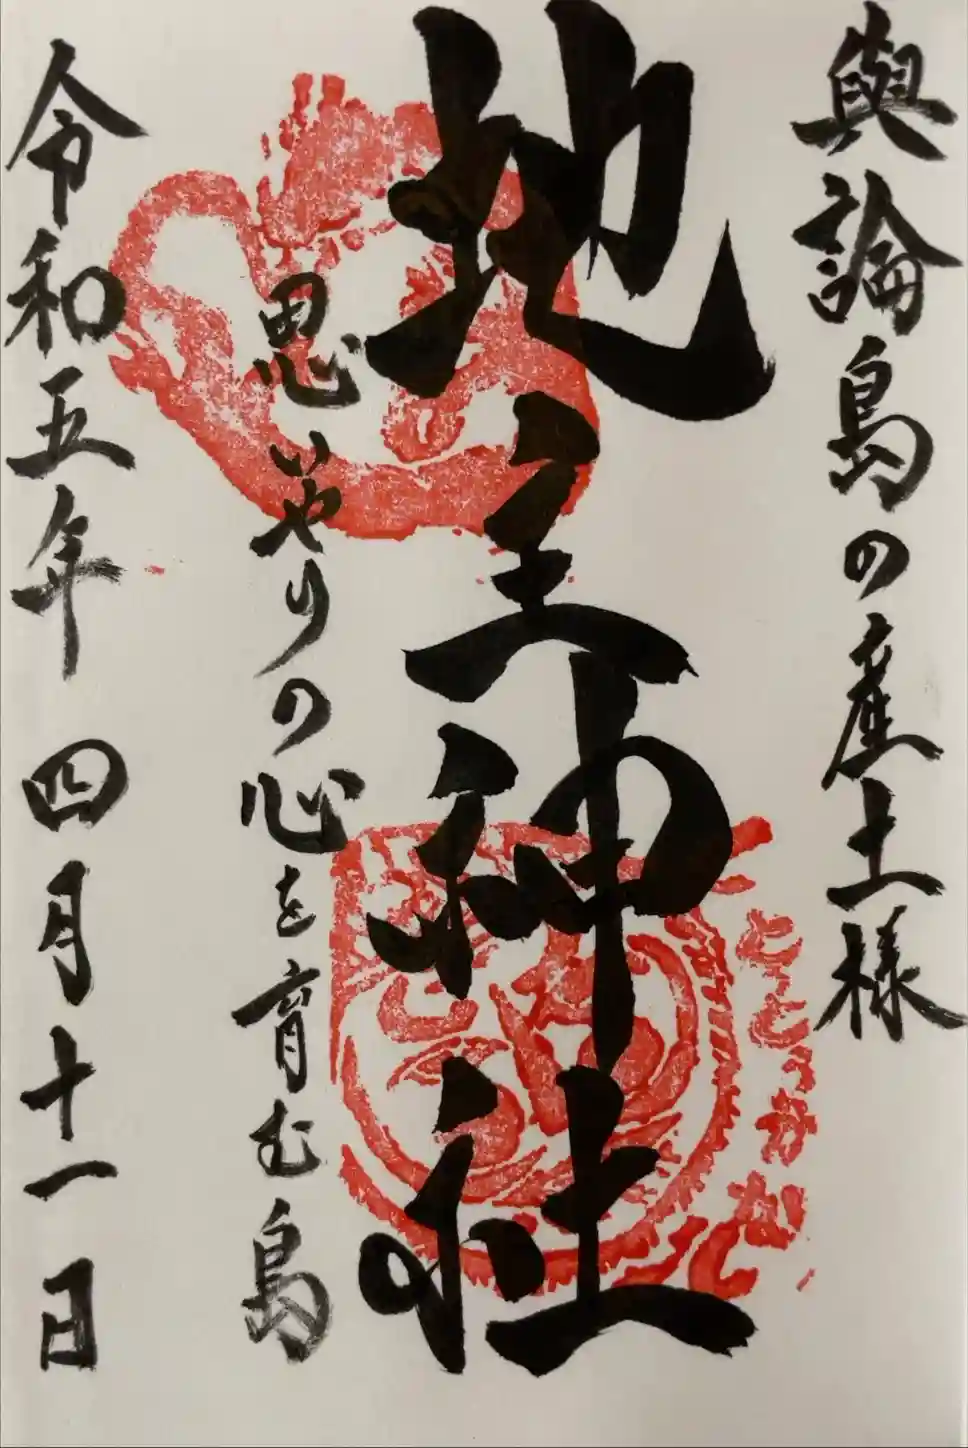 與論島の産土様
地主神社
思いやりの心を育む島
令和五年 四月十一日